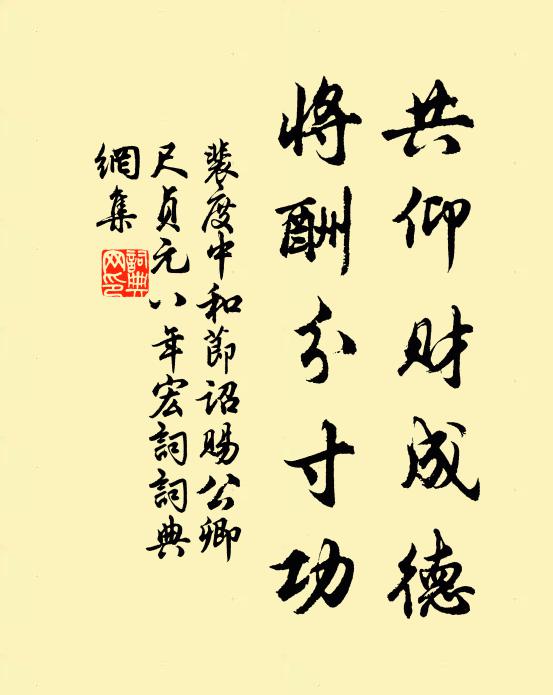 共仰財成德
將酬分寸功
裴度中和節詔賜公卿
尺貞元八年宏詞詞典
網集
詞典
网印